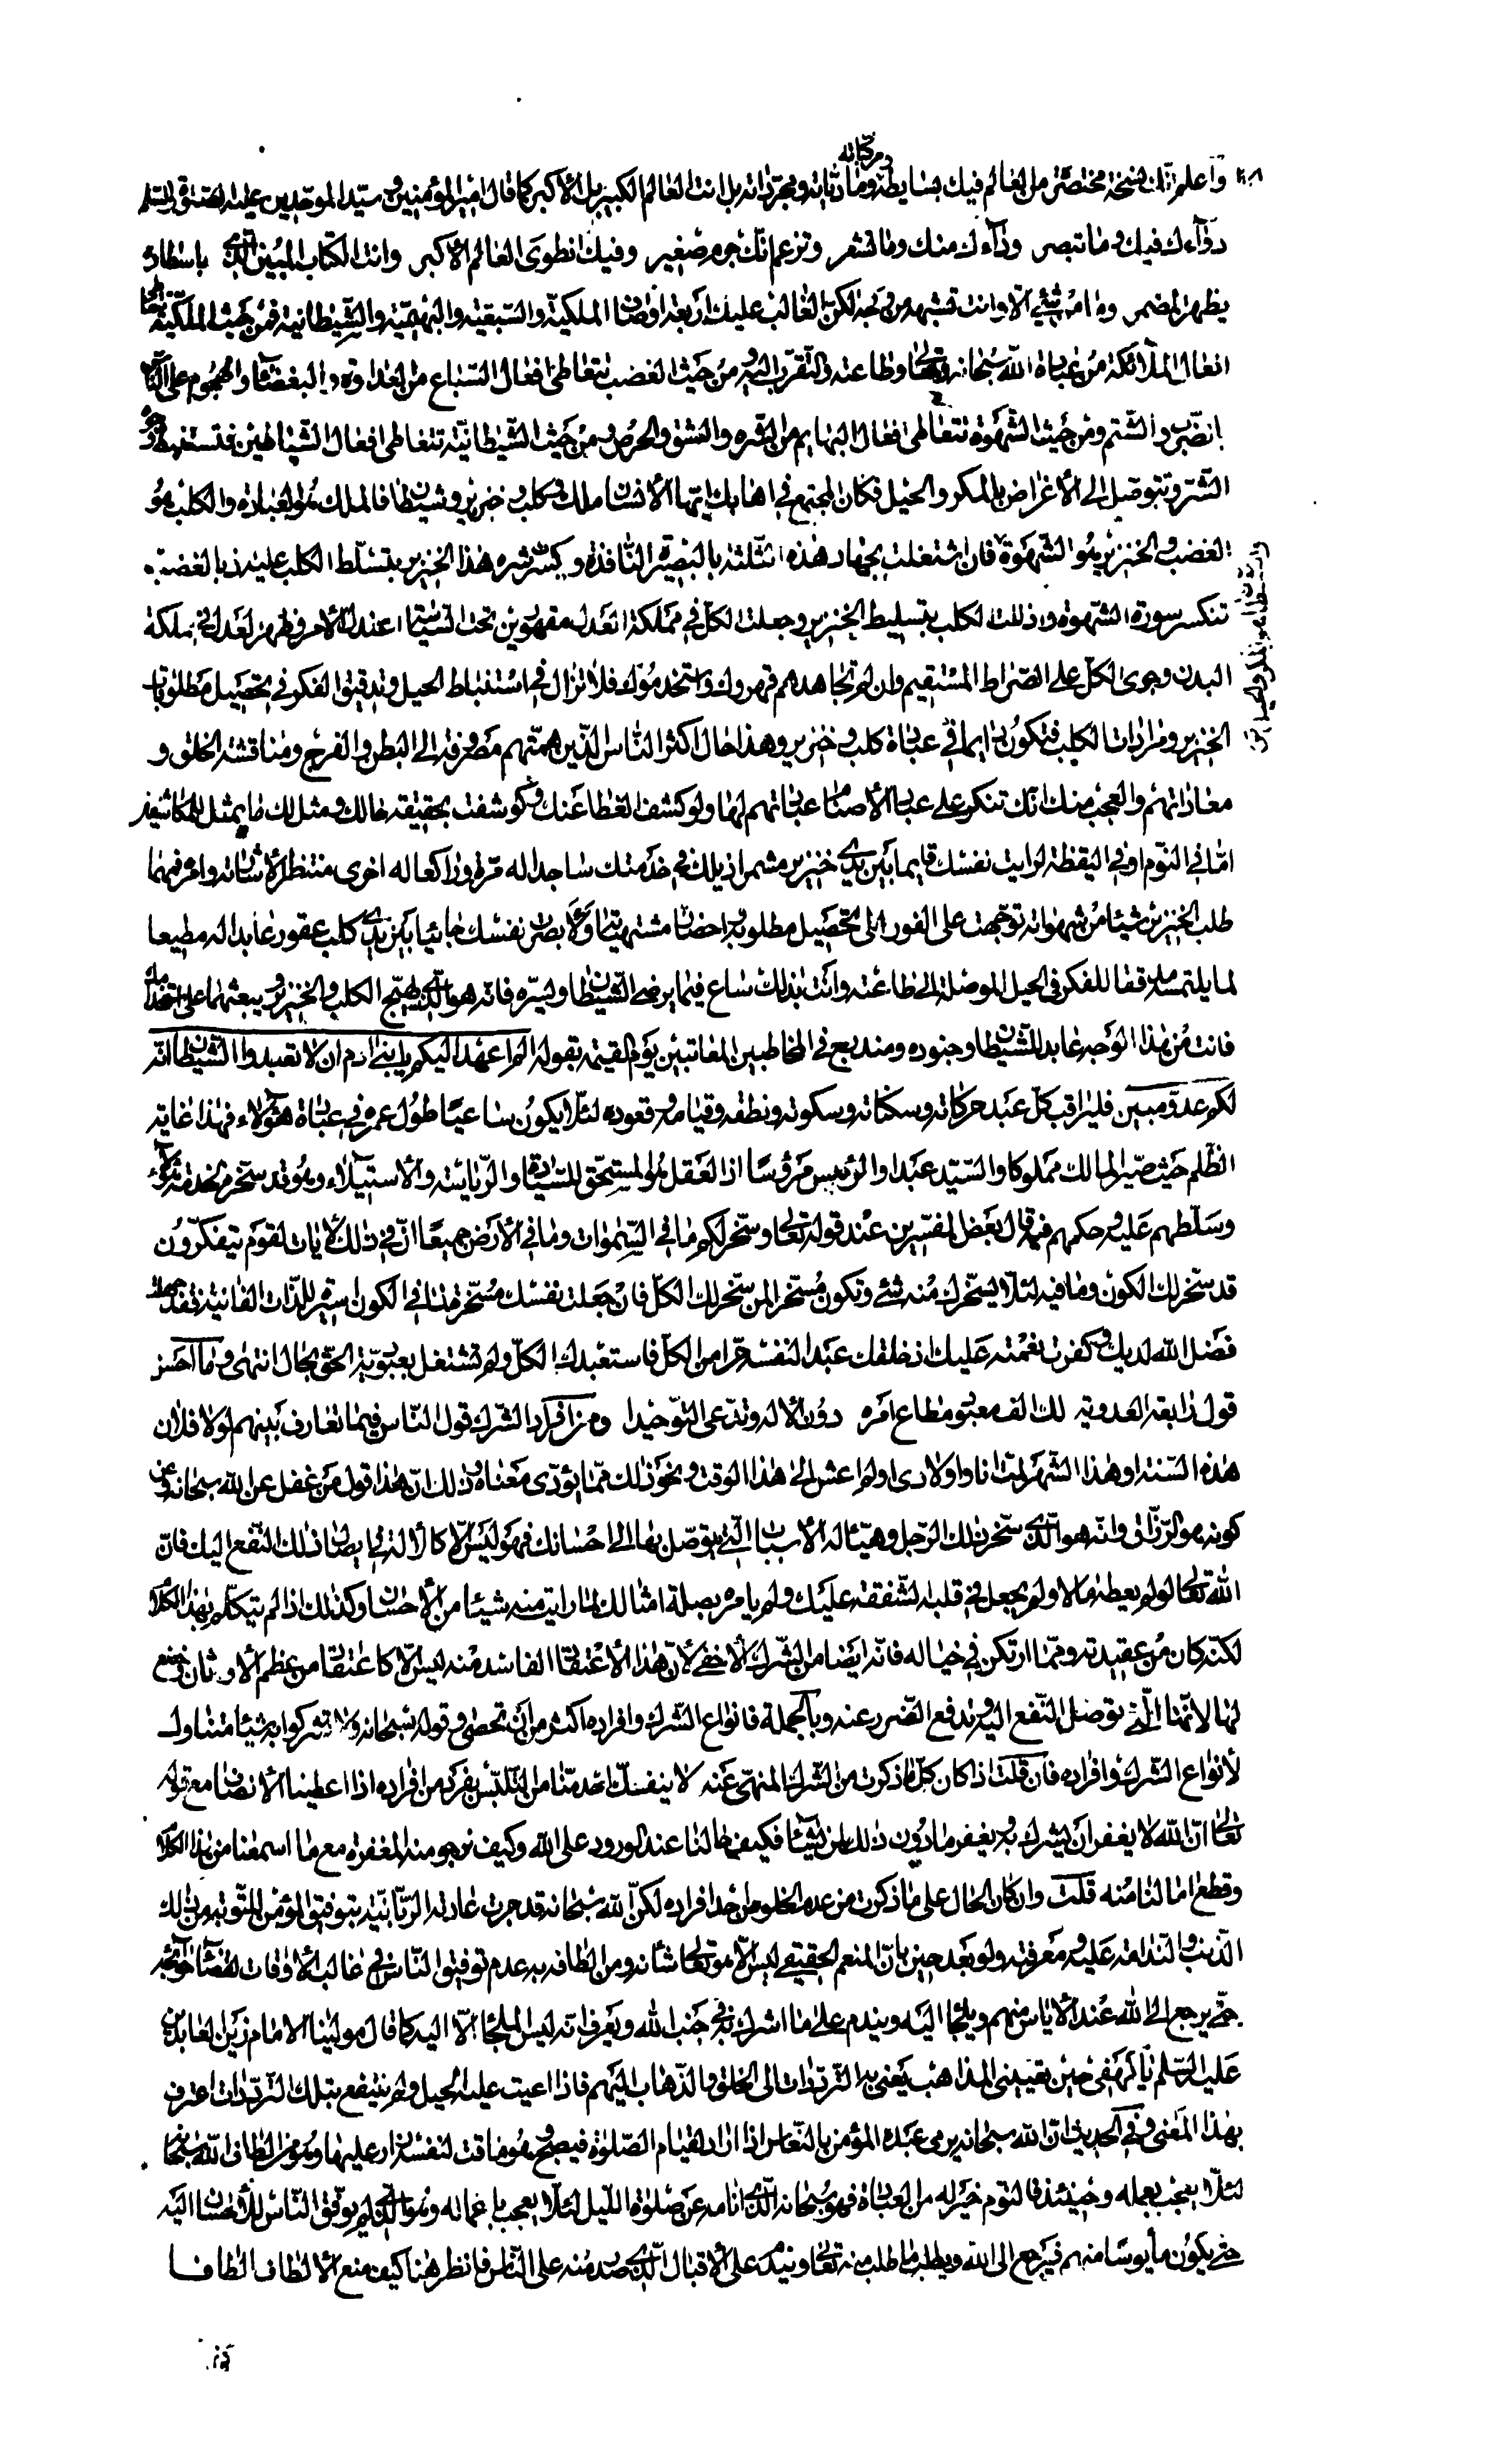 واعلم انك نسخة مختصرة من العالم فيك بسايطه ومركباته ومادياته ومجرداته بل انت العالم الكبير بل الأكبر كما قال امير المؤمنين وسيد الموحدين عليه الصلوة والسلم
دواءك فيك وما تبصر وداءك منك وما تشعر وتزعم انك جرم صغير وفيك انطوى العالم الأكبر وانت الكتاب المبين الذي باسطاره
يظهر المضمر وما من شئ الا وانت تشبهه من وجه لكن الغالب عليك اربعة اوصاف الملكية والسبعية والبهيمية والشيطانية فمن حيث الملكية تتعاطى
افعال الملائكة من عبادة الله سبحانه وتعالى وطاعته والتقرب اليه ومن حيث الغضب تتعاطى افعال السباع من العداوة والبغضاء والهجوم على الناس
بالضرب والشتم ومن حيث الشهوة تتعاطى افعال البهايم من الشره والشبق والحرص ومن حيث الشيطانية تتعاطى افعال الشياطين فتستنبط وجوه
الشر وتتوصل الى الأغراض بالمكر والحيل فكان المجتمع في اهابك ايها الأنسان ملك وكلب وخنزير وشيطان فالملك هو العبادة والكلب هو
الغضب والخنزير هو الشهوة فان اشتغلت بجهاد هذه الثلثة بالبصيرة النافذة وكسر شره هذا الخنزير بتسلط الكلب عليه اذ بالغضب
تنكسر سورة الشهوة واذللت الكلب بتسليط الخنزير وجعلت الكل في مملكة العدل مقهورين تحت السياسة اعتدل الأمر وظهر العدل في مملكة
البدن وجرى الكل على الصراط المستقيم وان لم تجاهدهم قهروك واستخدموك فلا تزال في استنباط الحيل وتدقيق الفكر في تحصيل مطلوبات
الخنزير ومرادات الكلب فتكون دايما في عبادة كلب وخنزير وهذا حال اكثر الناس الذين همتهم مصروفة الى البطن والفرج ومناقشة الخلق و
معاداتهم والعجب منك انك تنكر على عباد الأصنام عبادتهم لها ولو كشف الغطاء عنك وكوشفت بحقيقة حالك ومثل لك ما يمثل للمكاشفين
اما في النوم او في اليقظة لرايت نفسك قايما بين يدي خنزير مشمرا ذيلك في خدمته ساجدا له مرة وراكعا له اخرى منتظرا لأشارته وامره فمهما
طلب الخنزير شيئا من شهواته توجهت على الفور الى تحصيل مطلوبه واحضار مشتهياته ولأبصرت نفسك جاثيا بين يدي كلب عقور عابدا له مطيعا
لما يلتمسه مدققا للفكر في الحيل الموصلة الى طاعته وانت بذلك ساع فيما يرضي الشيطان ويسره فانه هو الذي يهيج الكلب والخنزير ويبعثهما على استخدامك
فانت من هذا الوجه عابد للشيطان وجنوده ومندرج في المخاطبين المعاتبين يوم القيمة بقوله الم اعهد اليكم يا بني ادم ان لا تعبدوا الشيطان انه
لكم عدو مبين فليراقب كل عبد حركاته وسكناته وسكوته ونطقه وقيامه وقعوده لئلا يكون ساعيا طول عمره في عبادة هؤلاء فهذا غاية
الظلم حيث صير المالك مملوكا والسيد عبدا والرئيس مرؤسا اذ العقل هو المستحق للسيادة والرياسة والأستيلاء وهو قد سخره لخدمة هؤلاء
وسلطهم عليه وحكمهم فيه قال بعض المفسرين عند قوله تعالى وسخر لكم ما في السموات وما في الأرض جميعا ان في ذلك لأيات لقوم يتفكرون
قد سخر لك الكون وما فيه لئلا يسخرك منه شئ وتكون مسخرا لمن سخر لك الكل فان جعلت نفسك مسخرة لما في الكون اسيرة للذات الفانية فقد جهلت
فضل الله لديك وكفرت نعمته عليك اذ خلقك عبدا لنفسه حرا من الكل فاستعبدك الكل ولم تشتغل بعبودية الحق بحال انتهى وما احسن
قول رابعة العدوية لك الف معبود مطاع امره دون الأله وتدعي التوحيدا ومن افراد الشرك قول الناس فيما تعارف بينهم لولا فلان
هذه السنة او هذا الشهر لمت انا واولادى او لم اعش الى هذا الوقت ونحو ذلك مما يؤدى معناه وذلك ان هذا قول من غفل عن الله سبحانه وعن
كونه هو الرزاق وانه هو الذي سخر ذلك الرجل وهيأ له الأسباب التي يتوصل بها الى احسانك فهو ليس الا كالألة في ايصال ذلك النفع اليك فان
الله تعالى لو لم يعطه مالا ولم يجعل في قلبه الشفقة عليك ولم يامره بصلة امثالك لما رايت منه شيئا من الأحسان وكذلك اذا لم يتكلم بهذا الكلام
لكنه كان من عقيدته ومما ارتكن في خياله فانه ايضا من الشرك الأخفى لأن هذا الأعتقاد الفاسد منه ليس الا كاعتقاد من عظم الأوثان وخضع
لها لأنها التي توصل النفع اليه وتدفع الضرر عنه وبالجملة فانواع الشرك وافراده اكثر من ان تحصى وقوله سبحانه ولا تشركوا به شيئا متناول
لأنواع الشرك وافراده فان قلت اذا كان كل ما ذكرت من الشرك المنهي عنه لا ينفك احد منا من التلبس بفرد من افراده اذا اعطينا الأنصاف مع قوله
تعالى ان الله لا يغفر ان يشرك به ويغفر ما دون ذلك لمن يشاء فكيف حالنا عند الورود على الله وكيف نرجو منه المغفرة مع ما اسمعنا من هذا الكلام
وقطع امالنا منه قلت وان كان الحال على ما ذكرت من عدم الخلو من احد افراده لكن الله سبحانه قد جرت عادته الربانية بتوفيق المؤمن للتوبة من ذلك
الذنب والندامة عليه ومعرفته ولو بعد حين بان المنعم الحقيقي ليس الا هو تعالى شانه ومن الطافه به عدم توفيق الناس في غالب الأوقات لقضاء حوائجه
حتى يرجع الى الله عند الأياس منهم ويلتجا اليه ويندم على ما اشرك به في جنب الله ويعرف انه ليس الملجا الا اليه كما قال مولينا الامام زين العابدين
عليه السلم يا كهفي حين تعييني المذاهب يعني به الترددات الى الخلق والذهاب اليهم فاذا اعيت عليه الحيل ولم ينتفع بتلك الترددات اعترف
بهذا المعنى وفي الحديث ان الله سبحانه يرمي عبده المؤمن بالنعاس اذا اراد القيام الى الصلوة فيصبح وهو ماقت لنفسه زار عليها وهو من الطاف الله سبحانه
لئلا يعجب بعمله وحينئذ فالنوم خير له من العبادة فهو سبحانه الذي انامه عن صلوة الليل لئلا يعجب باعماله وهو الذي لم يوفق الناس للأحسان اليه
حتى يكون مأيوسا منهم فيرجع الى الله ويطلب ما طلب منه تعالى ويندم على الأقبال الذي صدر منه على الناس فانظر هنا كيف منع الألطاف الطافا